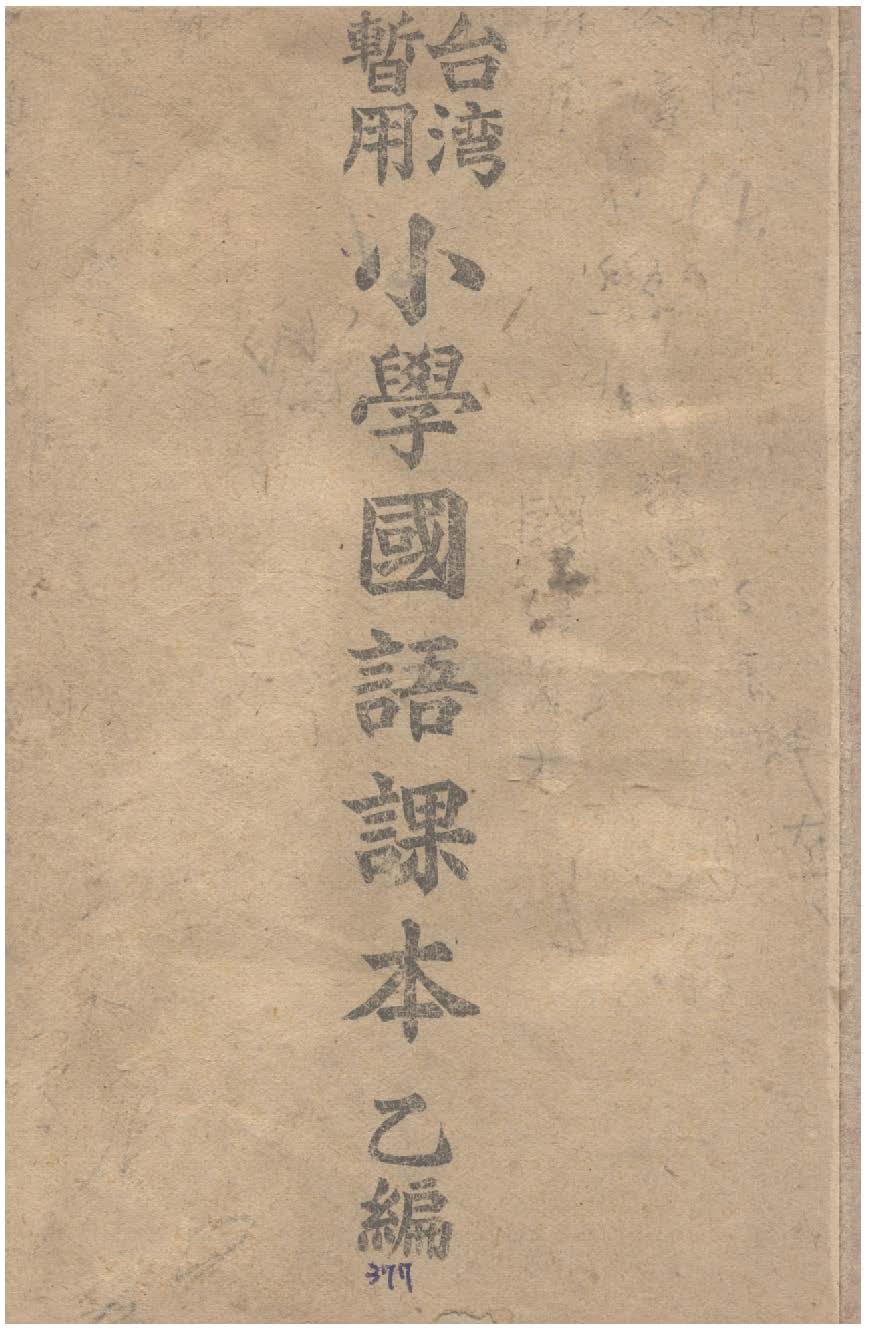 台湾
暫用
小學國語課本
乙編
377